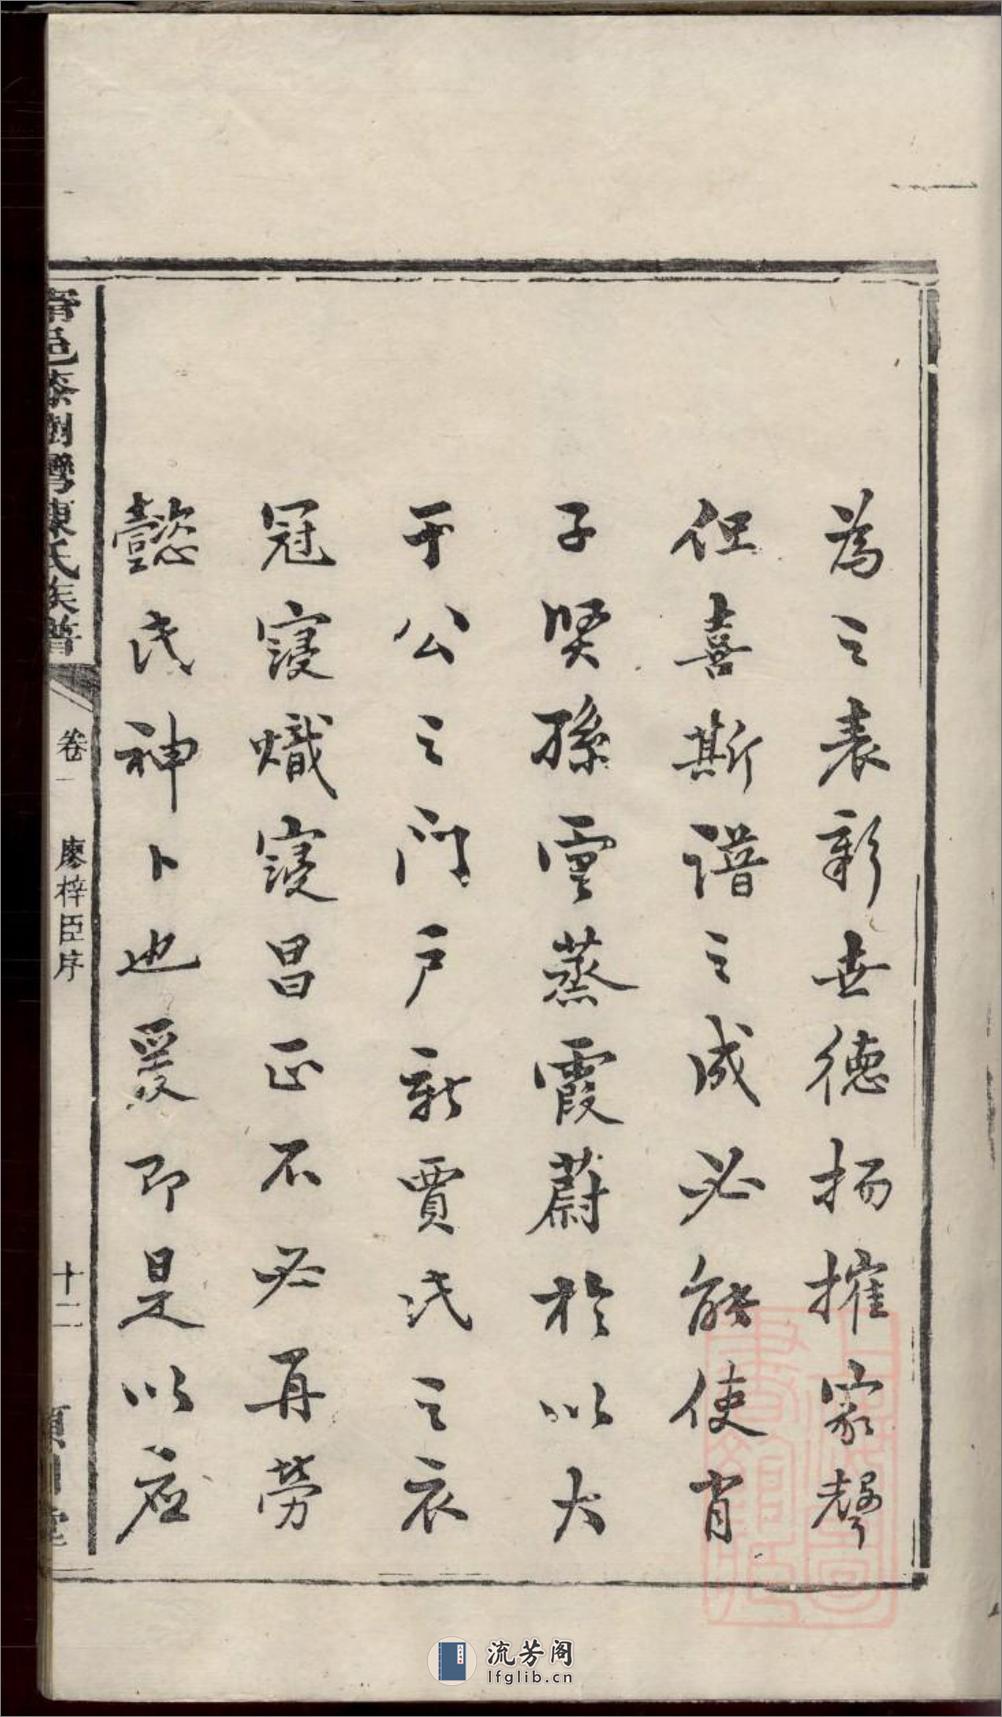 為之表彰世德扬搉家聲
但喜斯谱之成必能使肖
子賢孫雲蒸霞蔚於以大
于公之門戶新賈氏之衣
冠寖熾寖昌正不必再勞
懿氏神卜也爰即是以应
陳氏族譜
卷一
廖梓臣序
十二
流芳阁
lfglib.cn